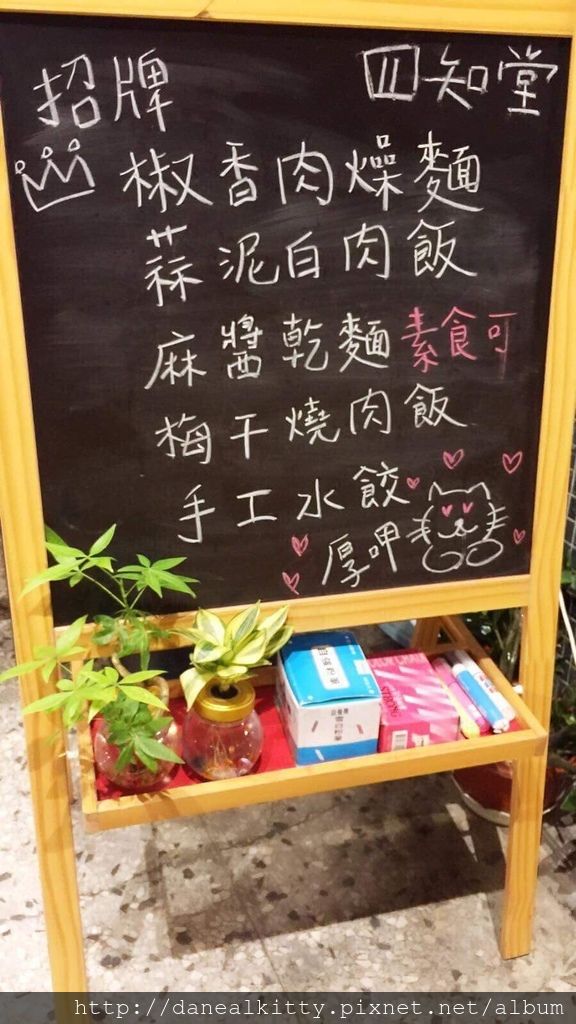 招牌 四知堂
椒香肉燥麵
蒜泥白肉飯
麻醬乾麵 素食可
梅干燒肉飯
手工水餃
厚呷
STRONG
http://danealkitty.pixnet.net/album